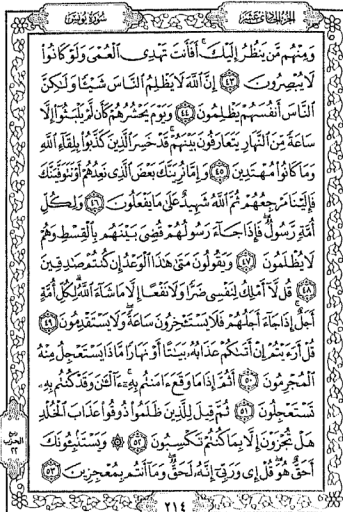 الجزء الحادي عشر
سورة يونس
وَمِنْهُم مَّن يَنظُرُ إِلَيْكَ ۚ أَفَأَنتَ تَهْدِي الْعُمْيَ وَلَوْ كَانُوا
لَا يُبْصِرُونَ ٤٣ إِنَّ اللَّهَ لَا يَظْلِمُ النَّاسَ شَيْئًا وَلَٰكِنَّ
النَّاسَ أَنفُسَهُمْ يَظْلِمُونَ ٤٤ وَيَوْمَ يَحْشُرُهُمْ كَأَن لَّمْ يَلْبَثُوا إِلَّا
سَاعَةً مِّنَ النَّهَارِ يَتَعَارَفُونَ بَيْنَهُمْ ۚ قَدْ خَسِرَ الَّذِينَ كَذَّبُوا بِلِقَاءِ اللَّهِ
وَمَا كَانُوا مُهْتَدِينَ ٤٥ وَإِمَّا نُرِيَنَّكَ بَعْضَ الَّذِي نَعِدُهُمْ أَوْ نَتَوَفَّيَنَّكَ
فَإِلَيْنَا مَرْجِعُهُمْ ثُمَّ اللَّهُ شَهِيدٌ عَلَىٰ مَا يَفْعَلُونَ ٤٦ وَلِكُلِّ
أُمَّةٍ رَّسُولٌ ۖ فَإِذَا جَاءَ رَسُولُهُمْ قُضِيَ بَيْنَهُم بِالْقِسْطِ وَهُمْ
لَا يُظْلَمُونَ ٤٧ وَيَقُولُونَ مَتَىٰ هَٰذَا الْوَعْدُ إِن كُنتُمْ صَادِقِينَ
٤٨ قُل لَّا أَمْلِكُ لِنَفْسِي ضَرًّا وَلَا نَفْعًا إِلَّا مَا شَاءَ اللَّهُ ۗ لِكُلِّ أُمَّةٍ
أَجَلٌ ۚ إِذَا جَاءَ أَجَلُهُمْ فَلَا يَسْتَأْخِرُونَ سَاعَةً ۖ وَلَا يَسْتَقْدِمُونَ ٤٩
قُلْ أَرَأَيْتُمْ إِنْ أَتَاكُمْ عَذَابُهُ بَيَاتًا أَوْ نَهَارًا مَّاذَا يَسْتَعْجِلُ مِنْهُ
الْمُجْرِمُونَ ٥٠ أَثُمَّ إِذَا مَا وَقَعَ آمَنتُم بِهِ ۚ آلْآنَ وَقَدْ كُنتُم بِهِ
تَسْتَعْجِلُونَ ٥١ ثُمَّ قِيلَ لِلَّذِينَ ظَلَمُوا ذُوقُوا عَذَابَ الْخُلْدِ
هَلْ تُجْزَوْنَ إِلَّا بِمَا كُنتُمْ تَكْسِبُونَ ٥٢ ۞ وَيَسْتَنبِئُونَكَ
أَحَقٌّ هُوَ ۖ قُلْ إِي وَرَبِّي إِنَّهُ لَحَقٌّ ۖ وَمَا أَنتُم بِمُعْجِزِينَ ٥٣
الحزب
٢٢
٢١٤